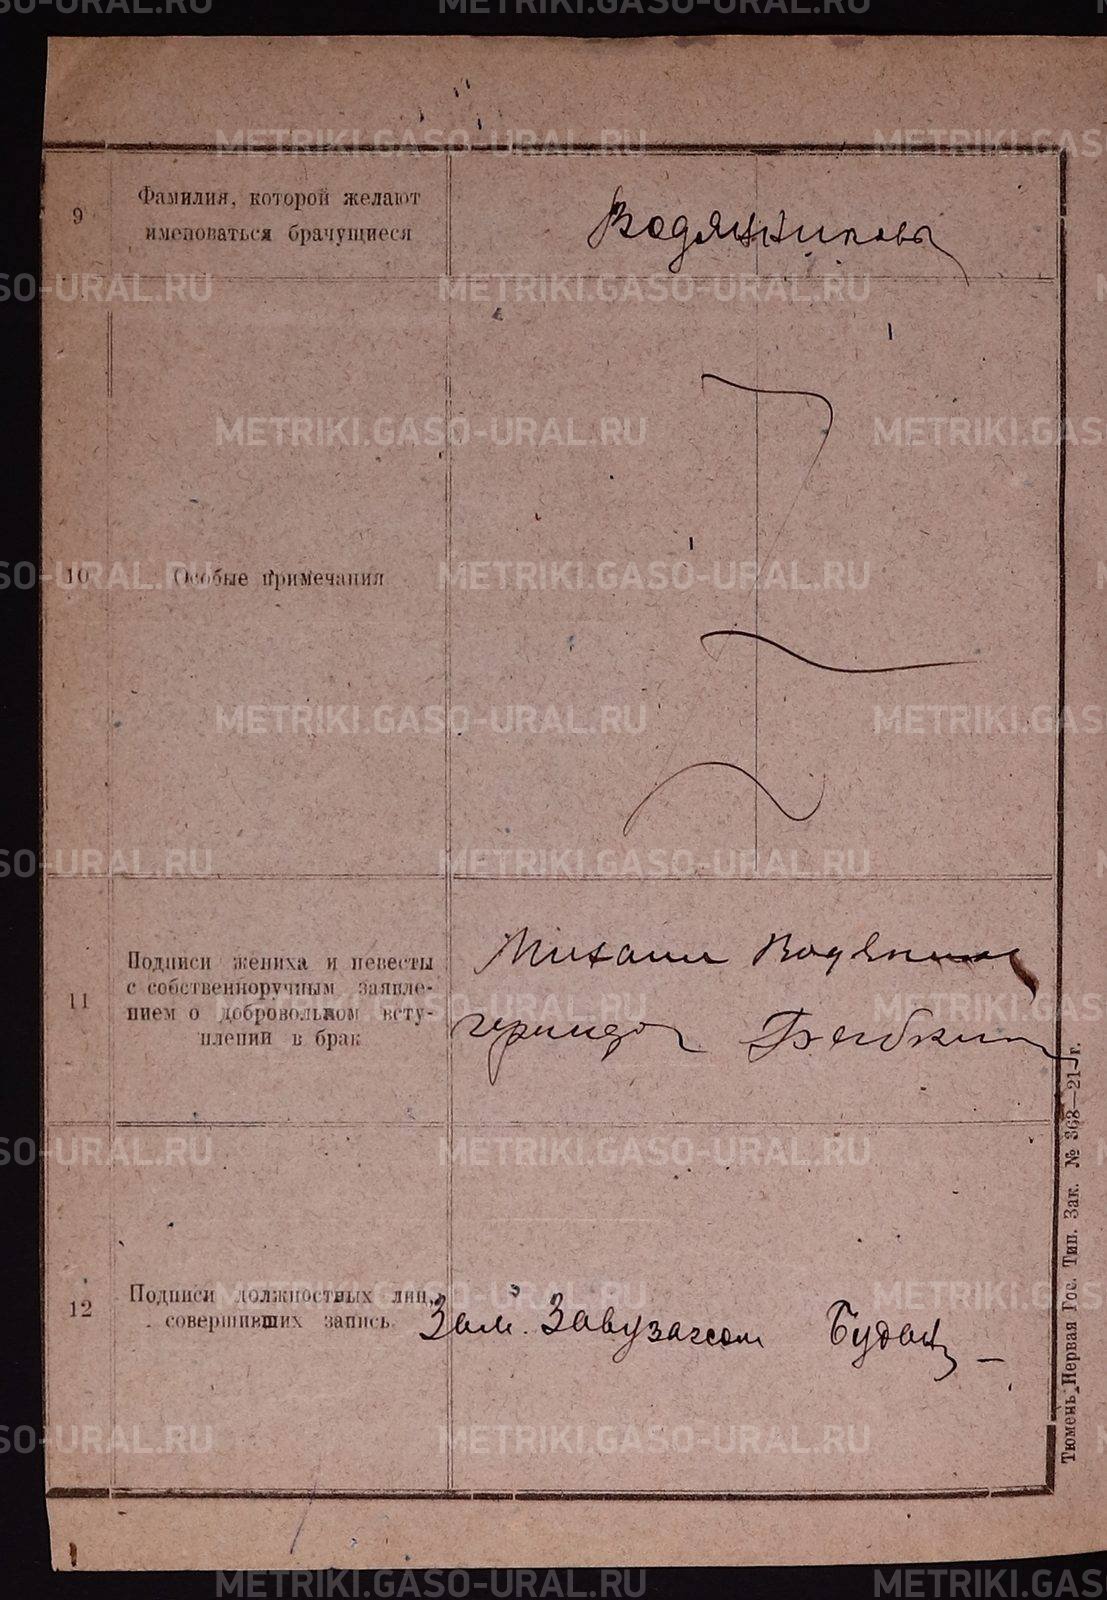 METRIKI.GASO-URAL.RU
9
Фамилия, которой желают
именоваться брачущиеся
Водянниковы
10
Особые примечания
11
Подписи жениха и невесты
с собственноручным заявле-
нием о добровольном всту-
плении в брак
Михаил Водяник
12
Подписи должностных лиц,
совершивших запись
Зам. Завузагсом
Тюмень, Первая Гос. Тип. Зак. № 368—21 г.